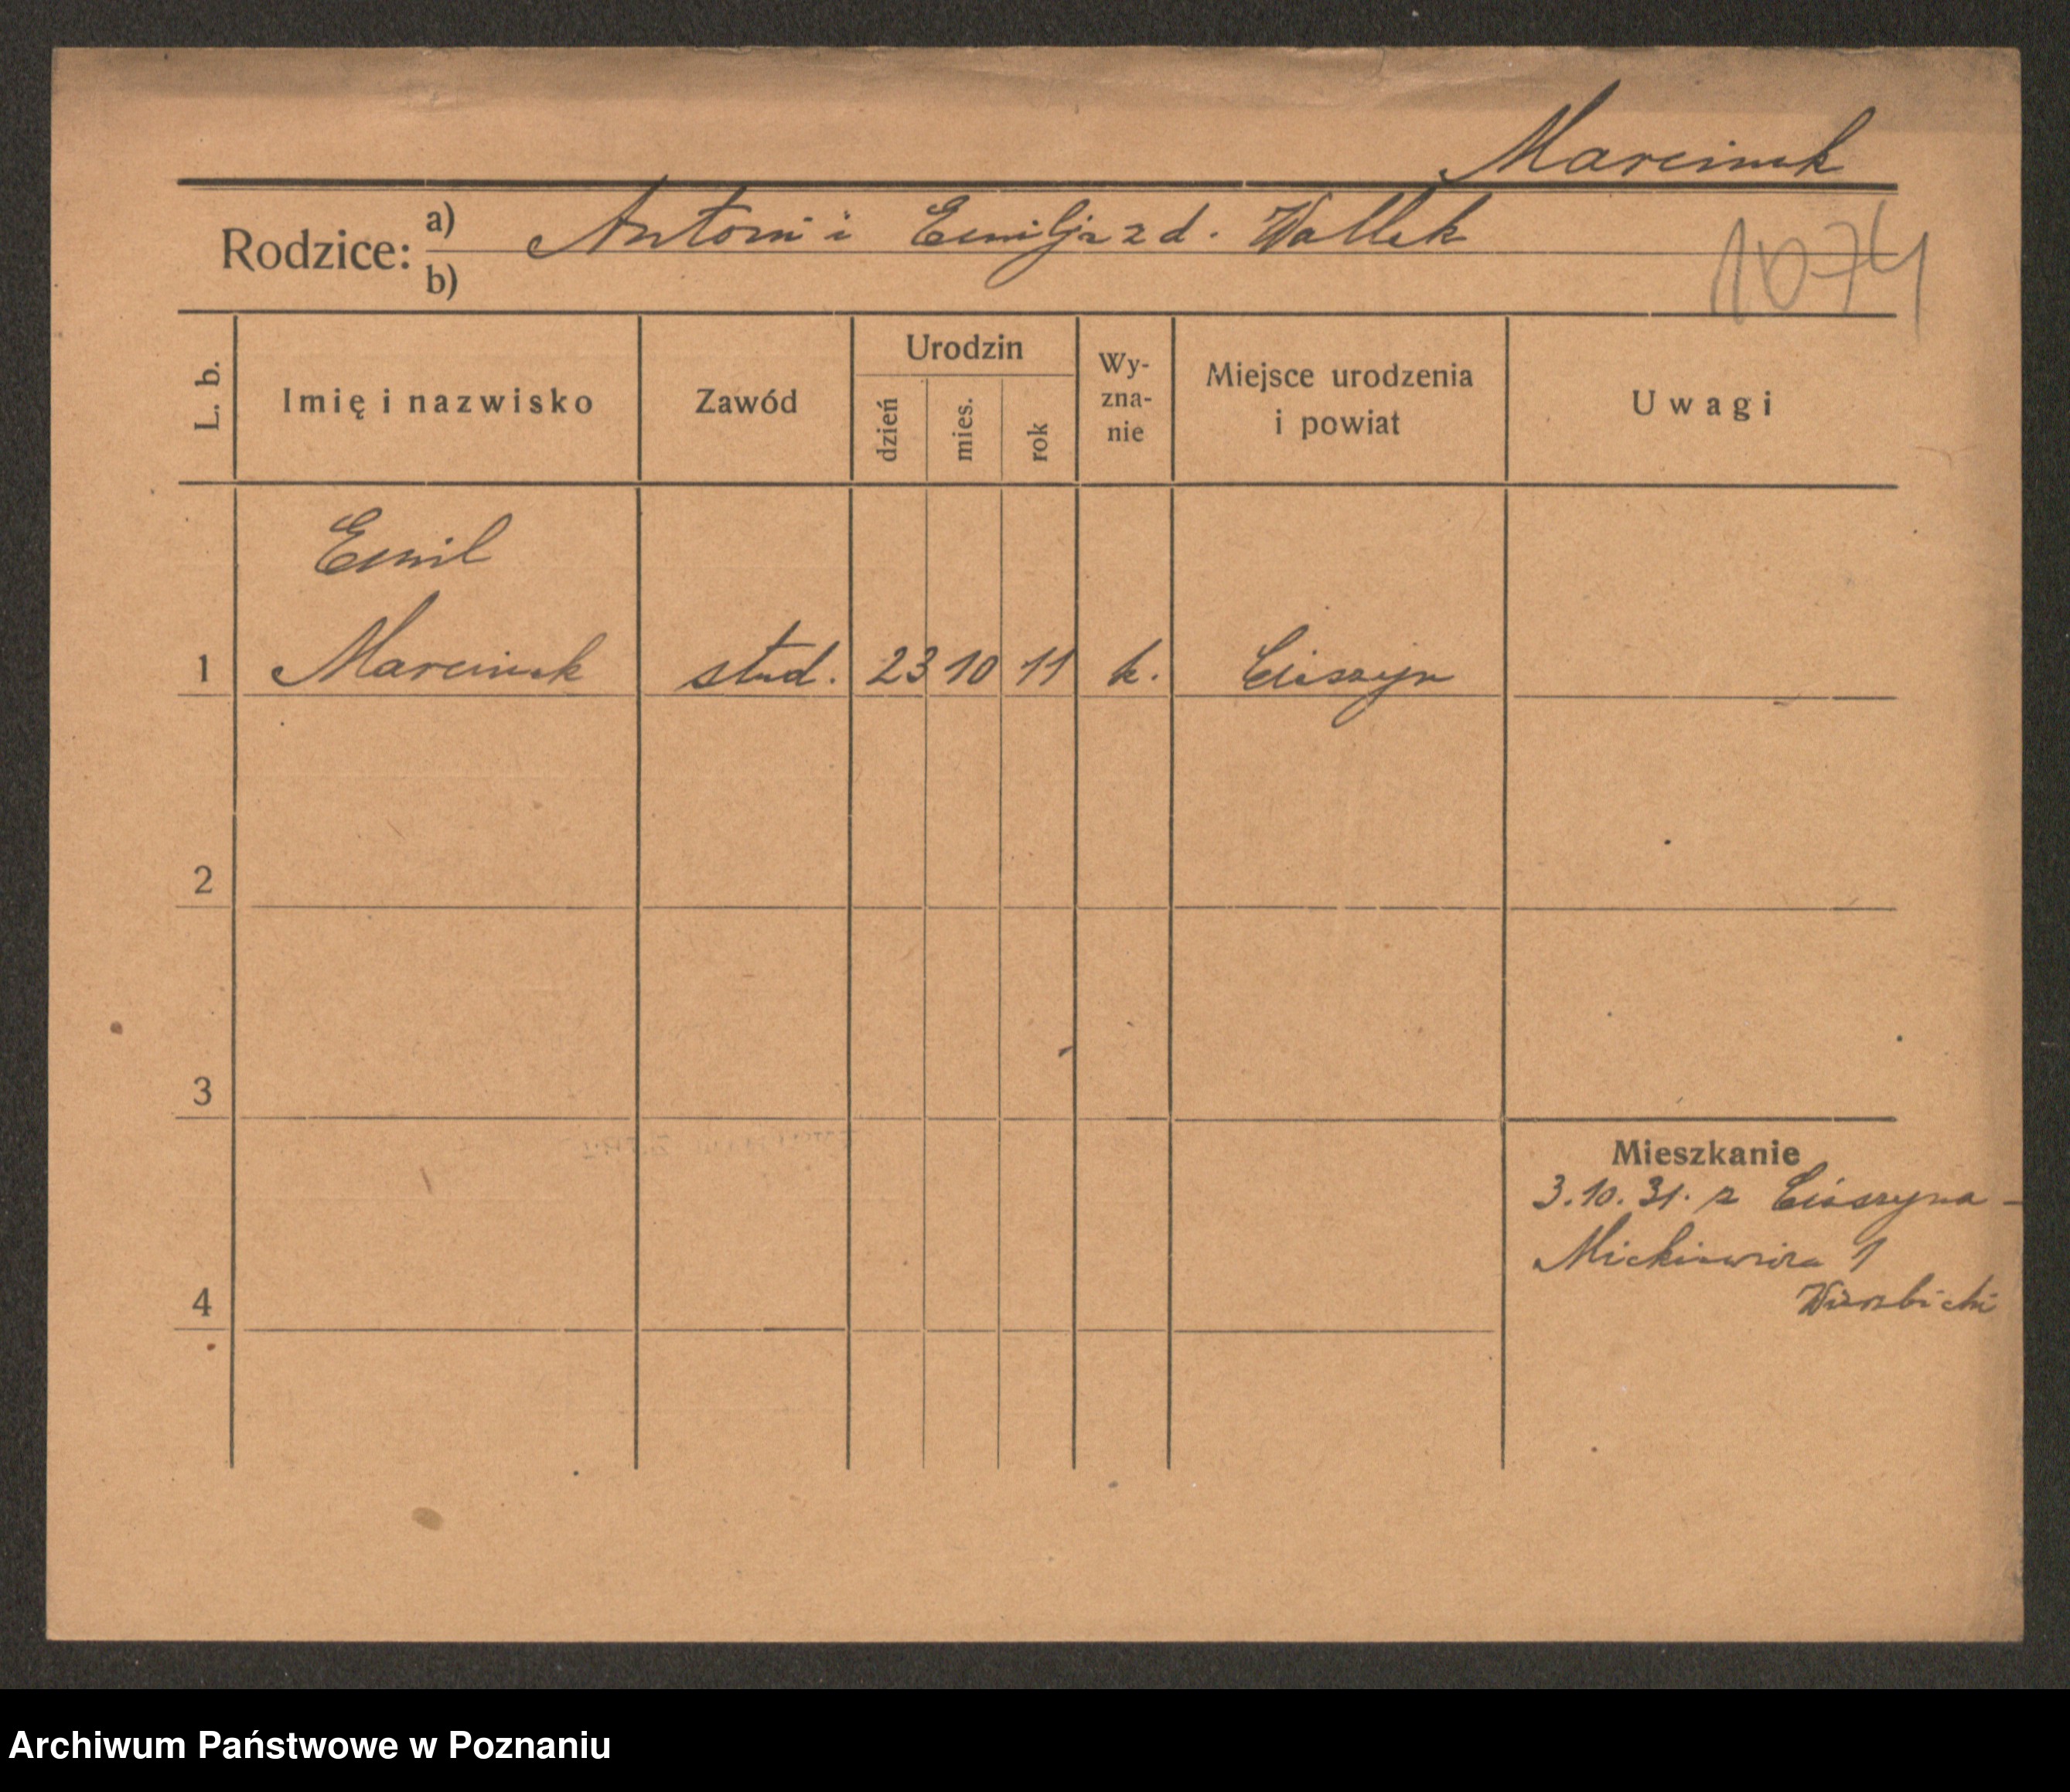 Marcinek
Rodzice: a) Antoni i Emilja z d. Wallek
b)
1074
L. b. Imię i nazwisko Zawód Urodzin dzień mies. rok Wy-zna-nie Miejsce urodzenia i powiat Uwagi
Emil
1 Marcinek stud. 23 10 11 k. Cieszyn
2
3
Mieszkanie
3.10.31. z Cieszyna -
Mickiewicza 1
4
Wierzbicki
Archiwum Państwowe w Poznaniu